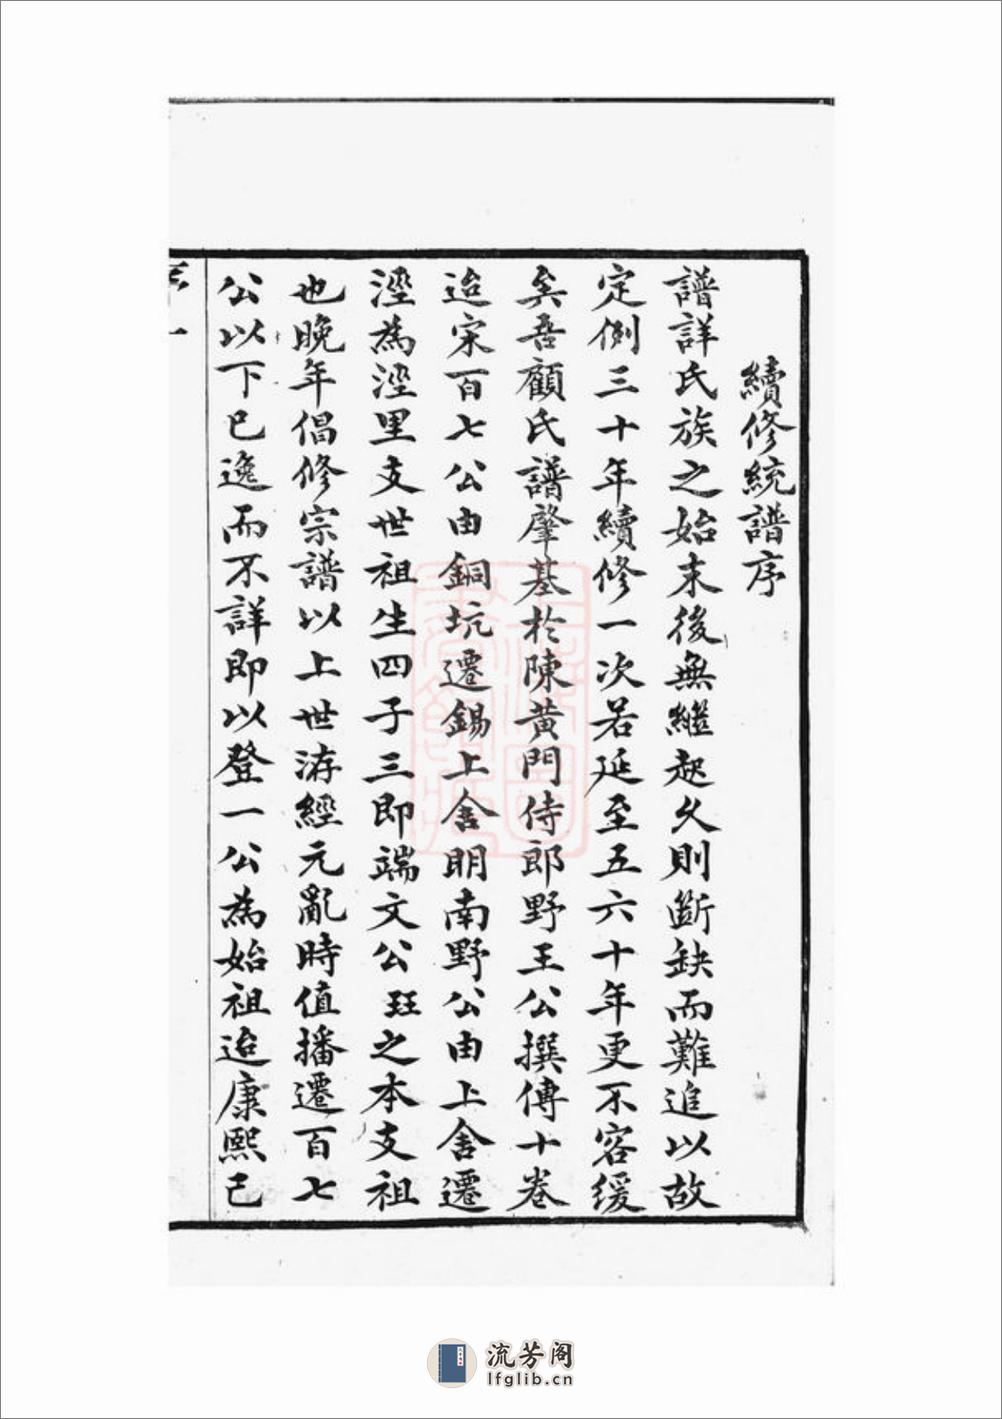 續修統譜序
譜詳氏族之始末後無繼起久則斷缺而難追以故
定例三十年續修一次若延至五六十年更不容緩
矣吾顧氏譜肇基於陳黃門侍郎野王公撰傳十卷
迨宋百七公由銅坑遷錫上舍明南野公由上舍遷
涇為涇里支世祖生四子三即端文公 玨之本支祖
也晚年倡修宗譜以上世洊經元亂時值播遷百七
公以下已逸而不詳即以登一公為始祖迨康熙己
序 一
流芳阁
lfglib.cn